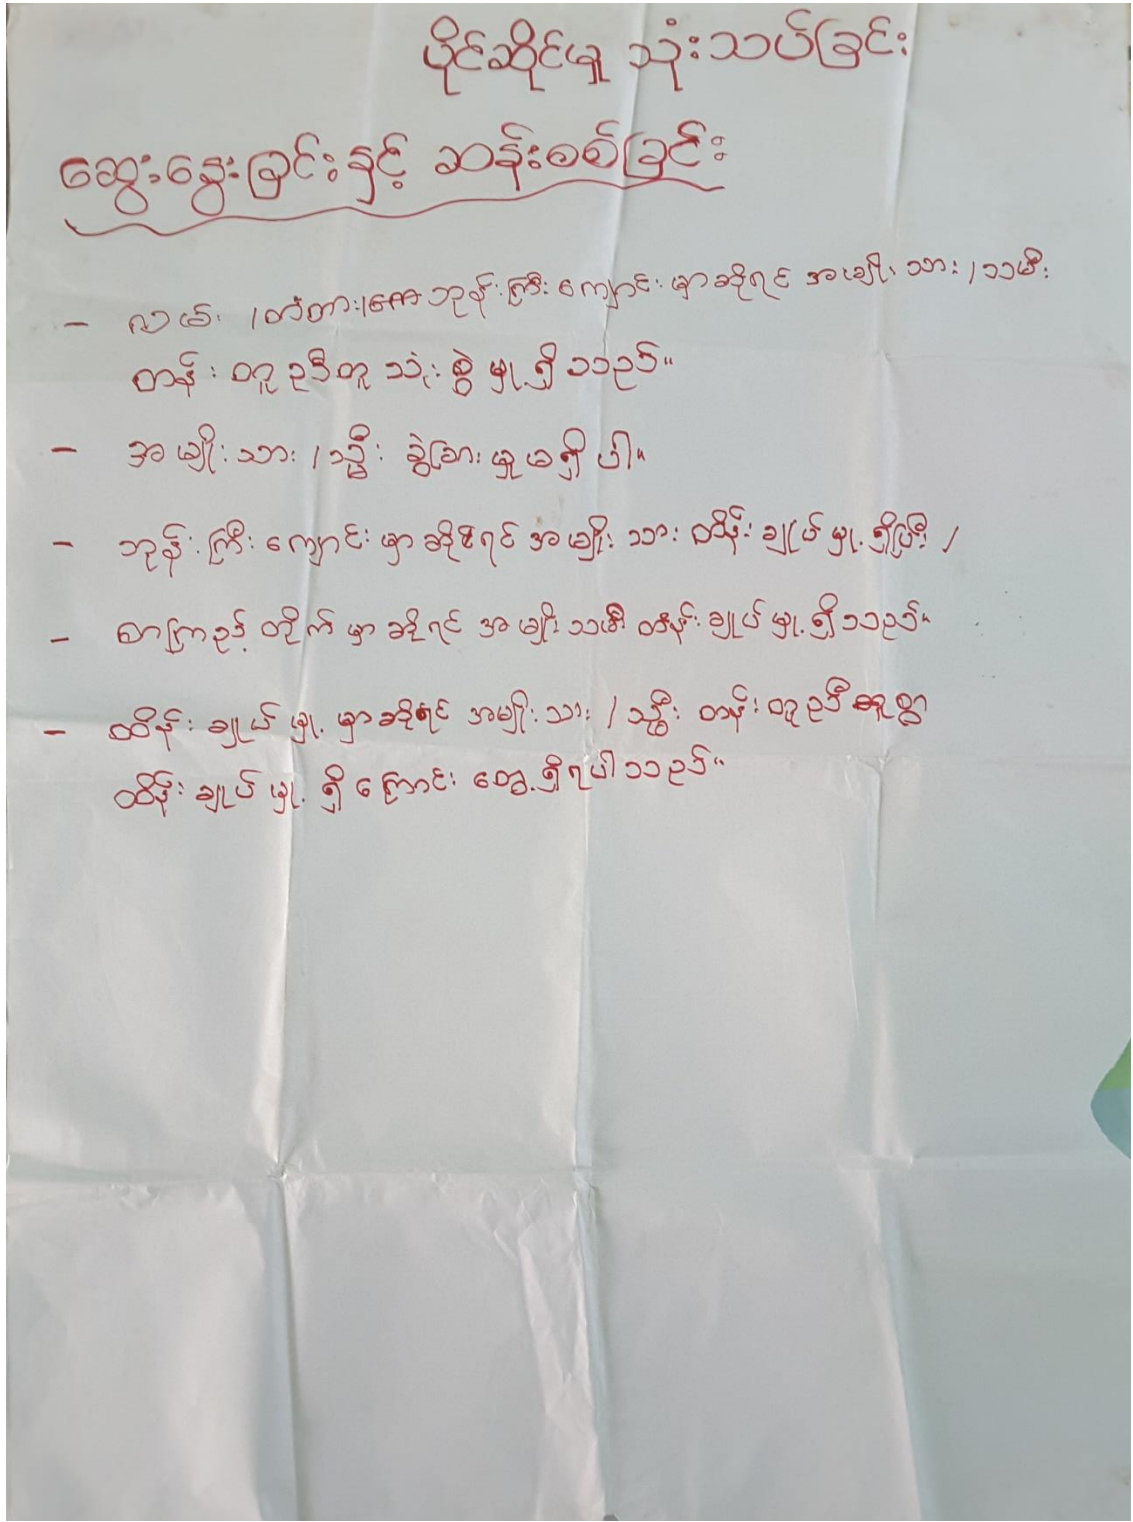 ပိုင်ဆိုင်မှု သုံးသပ်ခြင်း
ဆွေးနွေးခြင်းနှင့် ဆန်းစစ်ခြင်း
- လမ်း /တံတား/ ဘုန်းကြီးကျောင်းမှာဆိုရင် အမျိုးသား /သမီး
တန်းတူညီတူ သုံးစွဲမှု့ရှိသည်။
- အမျိုးသား /သ္မီး ခွဲခြားမှုမရှိပါ။
- ဘုန်းကြီးကျောင်းမှာဆိုရင် အမျိုးသား ထိန်းချုပ်မှု့ရှိပြီး /
- စာကြည့်တိုက်မှာဆိုရင် အမျိုးသမီး ထိန်းချုပ်မှု့ရှိသည်။
- ထိန်းချုပ်မှု့မှာဆိုရင် အမျိုးသား /သ္မီး တန်းတူညီတူစွာ
ထိန်းချုပ်မှု့ရှိကြောင်း တွေ့ရှိရပါသည်။